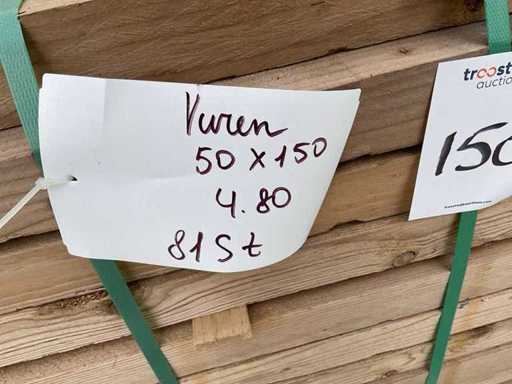 Vuren
50 x 150
4.80
81 St
troost
auctio
150